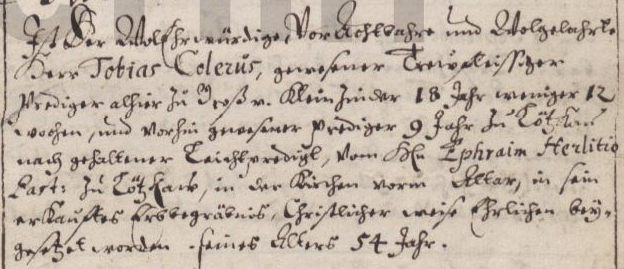 Ist Der WolEhrwürdige, VorAchtbahre und Wolgelahrte
Herr Tobias Colerus, gewesener Treuvfleissiger
Prediger alhier zu Groß v. Klein 18 Jahr weniger 12
wochen, und vorhin gewesener Prediger 9 Jahr zu
nach gehaltener Leichpredigt, vom Hn Ephraim Herlitio
Past: zu, in der Kirchen vorm Altar, in sein
erkaufftes Erbbegräbnis, Christlicher weise Ehrlichen bey-
gesetzet worden. seines Alters 54 Jahr.